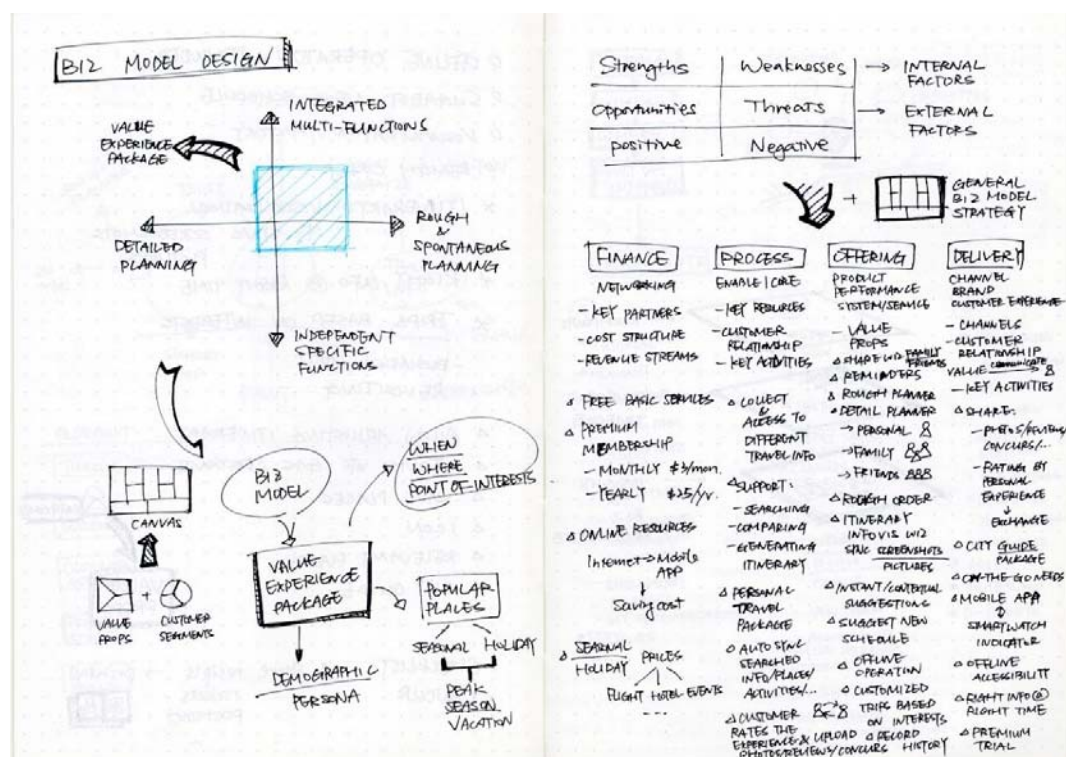 BIZ MODEL DESIGN
INTEGRATED
MULTI-FUNCTIONS
VALUE
EXPERIENCE
PACKAGE
DETAILED
PLANNING
ROUGH
&
SPONTANEOUS
PLANNING
INDEPENDENT
SPECIFIC
FUNCTIONS
CANVAS
VALUE
PROPS
+
CUSTOMER
SEGMENTS
BIZ
MODEL
WHEN
WHERE
POINT OF INTERESTS
VALUE
EXPERIENCE
PACKAGE
POPULAR
PLACES
SEASONAL HOLIDAY
PEAK
SEASON
VACATION
DEMOGRAPHIC
PERSONA
Strengths Weaknesses → INTERNAL
FACTORS
Opportunities Threats → EXTERNAL
FACTORS
positive Negative
+
GENERAL
BIZ MODEL
STRATEGY
FINANCE
NETWORKING
- KEY PARTNERS
- COST STRUCTURE
- REVENUE STREAMS
FREE BASIC SERVICES
PREMIUM
MEMBERSHIP
- MONTHLY $3/mon.
- YEARLY $25/yr.
ONLINE RESOURCES
Internet → Mobile
APP
↓
Saving cost
SEASONAL
HOLIDAY PRICES
FLIGHT HOTEL EVENTS
---
PROCESS
ENABLE/CORE
- KEY RESOURCES
- CUSTOMER
RELATIONSHIP
- KEY ACTIVITIES
COLLECT
&
ACCESS TO
DIFFERENT
TRAVEL INFO
SUPPORT.
- SEARCHING
- COMPARING
- GENERATING
ITINERARY
PERSONAL
TRAVEL
PACKAGE
AUTO SYNC
SEARCHED
INFO/PLACES/
ACTIVITIES/..
CUSTOMER
RATES THE
EXPERIENCE & UPLOAD
PHOTOS/REVIEWS/CONCURS
OFFERING
PRODUCT
PERFORMANCE
SYSTEM/SERVICE
- VALUE
PROPS
SHARE W/ FAMILY
FRIENDS
REMINDERS
ROUGH PLANNER
DETAIL PLANNER
→ PERSONAL
→ FAMILY
→ FRIENDS
ROUGH ORDER
ITINERARY
INFO VIS W/
SYNC SCREENSHOTS
PICTURES
INSTANT/CONTEXTUAL
SUGGESTIONS
SUGGEST NEW
SCHEDULE
OFFLINE
OPERATION
CUSTOMIZED
TRIPS BASED
ON INTERESTS
RECORD
HISTORY
DELIVERY
CHANNEL
BRAND
CUSTOMER EXPERIENCE
- CHANNELS
- CUSTOMER
RELATIONSHIP
VALUE COMMUNICATE
- KEY ACTIVITIES
SHARE.
- PHOTOS/REVIEWS/
CONCURS/..
- RATING BY
PERSONAL
EXPERIENCE
↓
EXCHANGE
CITY GUIDE
PACKAGE
ON-THE-GO NEEDS
MOBILE APP
SMARTWATCH
INDICATOR
OFFLINE
ACCESSIBILITY
RIGHT INFO @
RIGHT TIME
PREMIUM
TRIAL